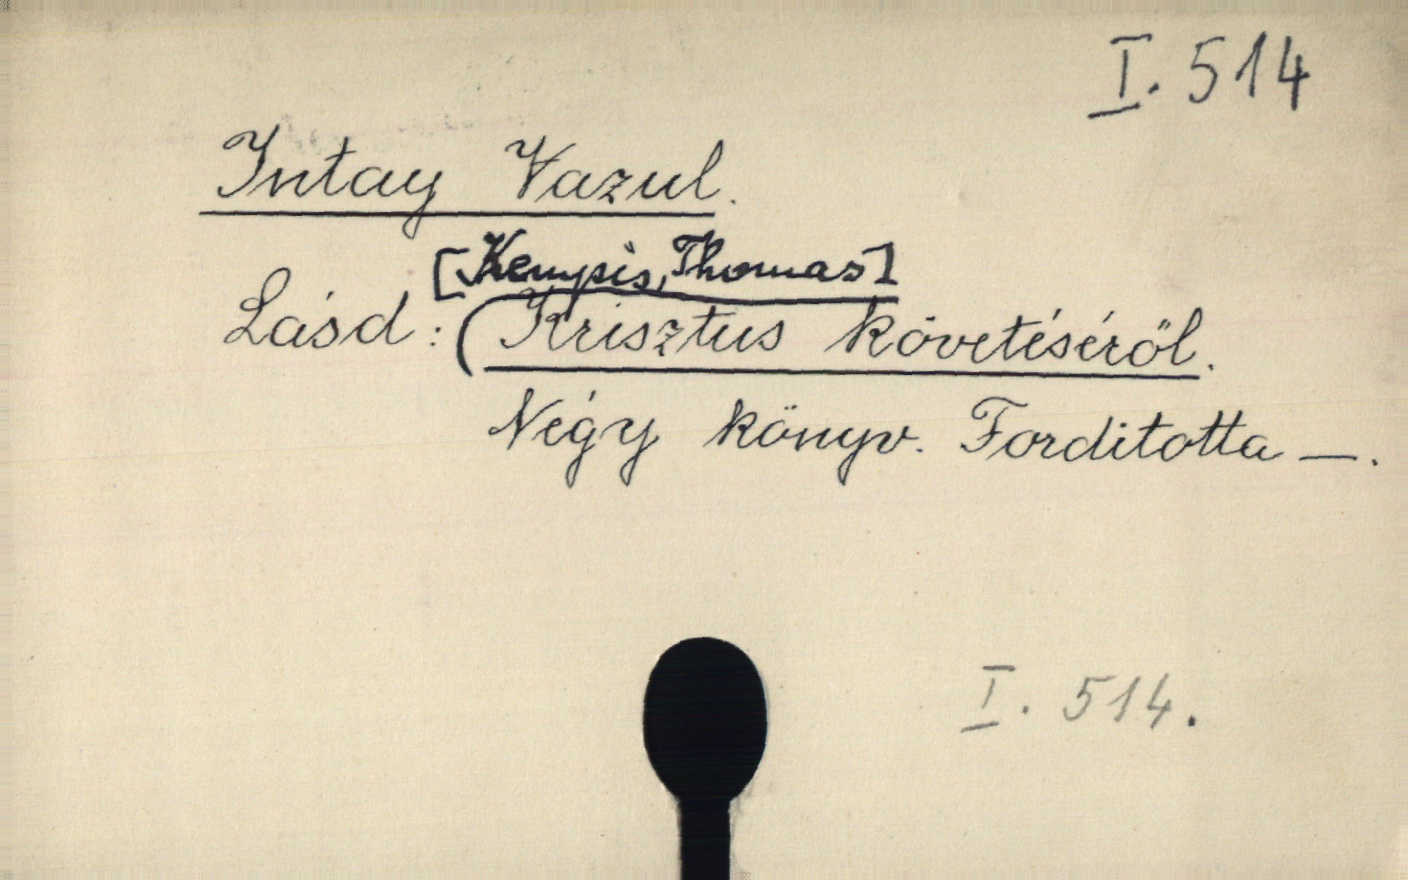 I. 514
Intay Vazul.
[Kempis, Thomas]
Lásd: (Krisztus követéséről.
Négy könyv. Forditotta —.
I. 514.